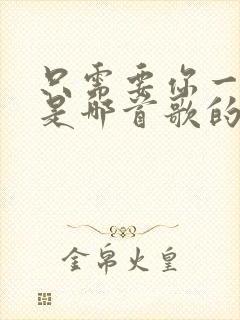 只需要你一
是哪首歌的
金帛火皇